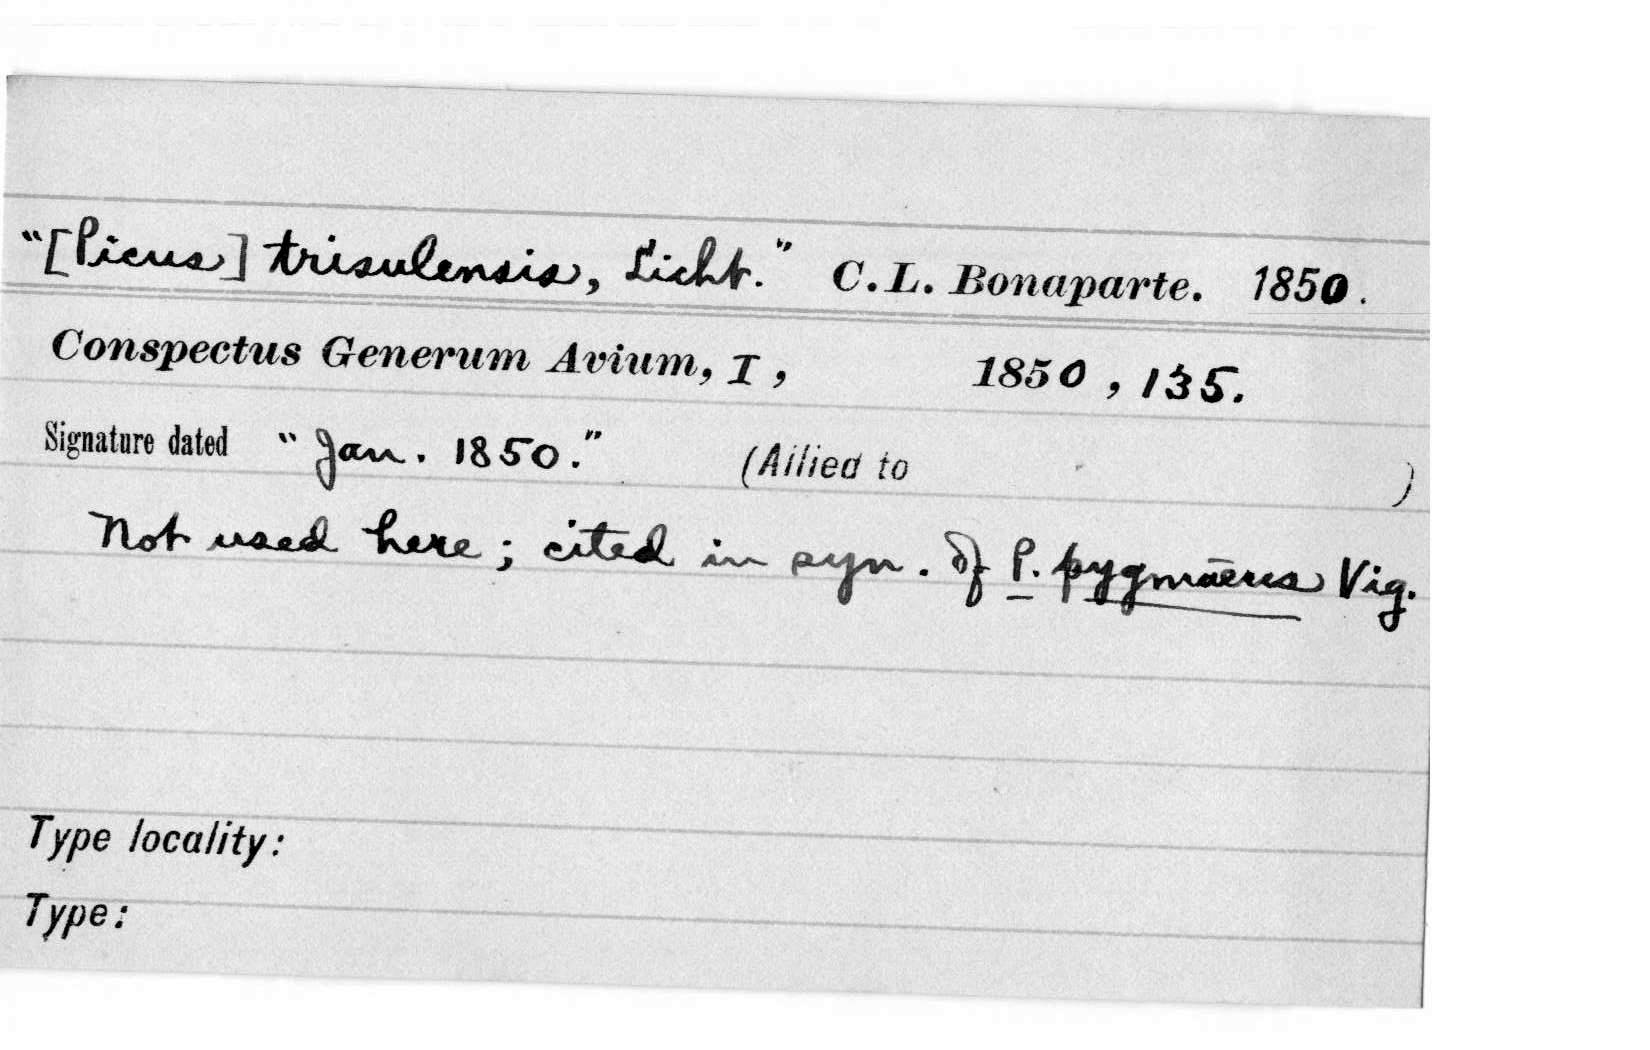 "[Picus] trisulensis, Licht." C.L. Bonaparte. 1850.
Conspectus Generum Avium, I, 1850, 135.
Signature dated "Jan. 1850." (Allied to )
Not used here; cited in syn. of P. pygmaeus Vig.
Type locality:
Type: